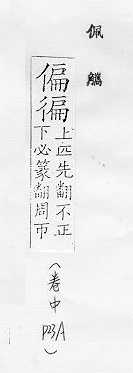 佩觿
偏徧
上匹先翻不正
下必篆翻周帀
（卷中 P23A）